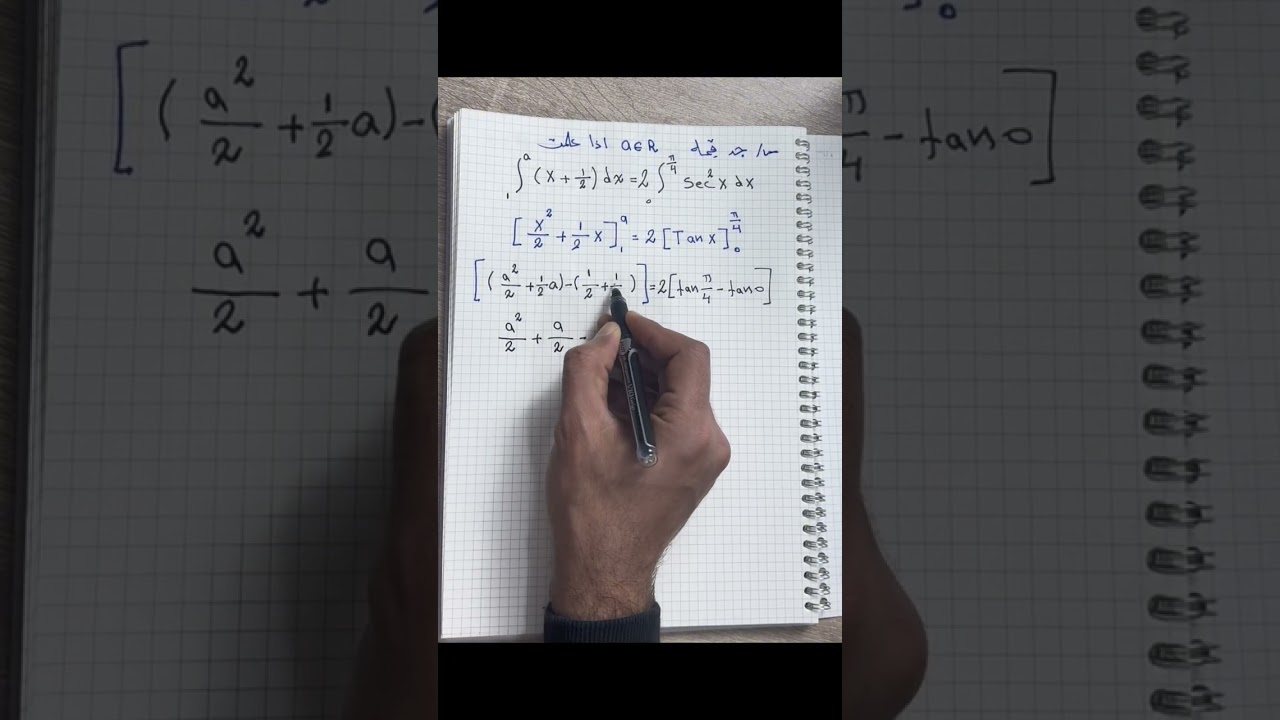 س/ جد قيمة a∈R اذا علمت
∫₁ᵃ (x + 1/2) dx = 2 ∫₀^(π/4) sec²x dx
[x²/2 + 1/2 x]₁ᵃ = 2 [Tan x]₀^(π/4)
[(a²/2 + 1/2 a) - (1/2 + 1/ )] = 2 [tan π/4 - tan 0]
a²/2 + a/2 -